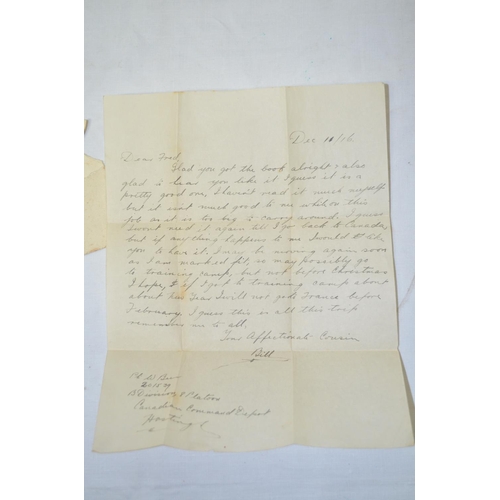 Dec 11/16
Dear Fred,
Glad you got the book alright & also
glad to hear you like it I guess it is a
pretty good one, I haven't read it much myself
but it isn't much good to me while on this
job as it is too big to carry around. I guess
I wont need it again till I go back to Canada
but if anything happens to me I would like
you to have it. I may be moving again soon
as I am marked fit, so may possibly go
to training camp, but not before Christmas
I hope, & if I go to training camp about
about New Year I will not go to France before
February I guess this is all this trip
remember me to all.
Your Affectionate Cousin
Bill
Pte W
Division 8 Platoon
Canadian Command Depot
Hastings